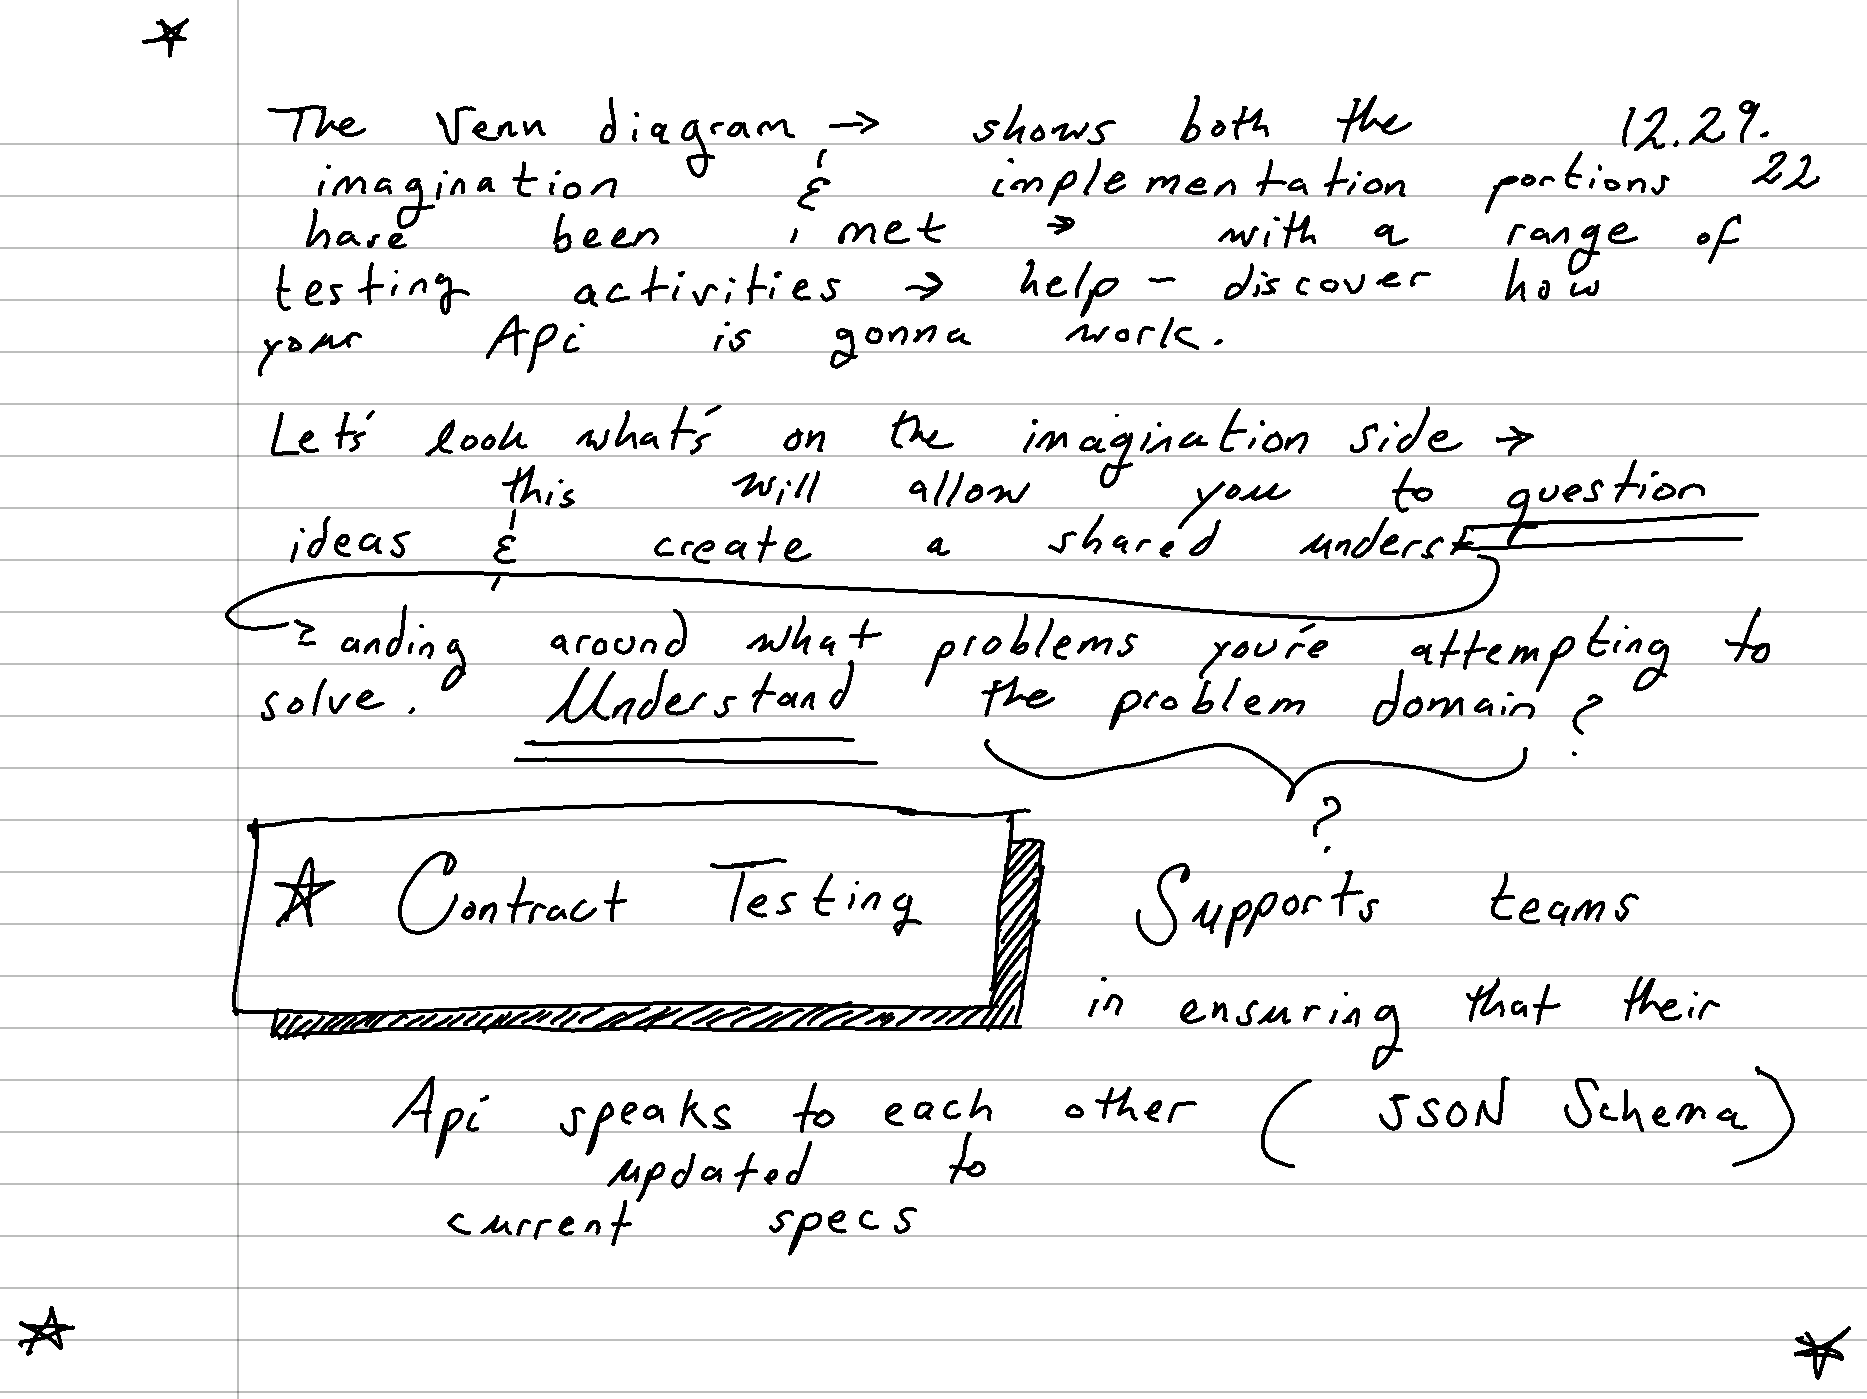 The Venn diagram → shows both the 12.29.
imagination & implementation portions 22
have been met → with a range of
testing activities → help - discover how
your Api is gonna work.
Let's look what's on the imagination side →
this will allow you to question
ideas & create a shared underst
→ anding around what problems you're attempting to
solve. Understand the problem domain?
?
☆ Contract Testing Supports teams
in ensuring that their
Api speaks to each other (JSON Schema)
updated to
current specs